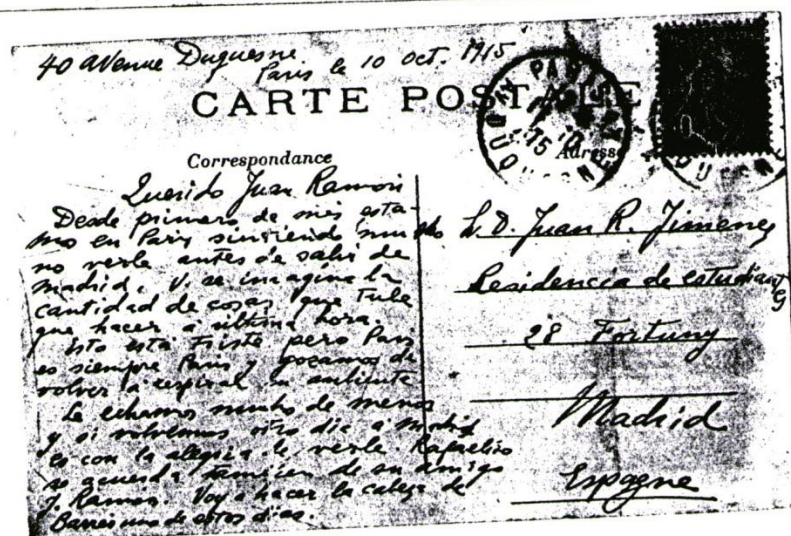 40 avenue Duquesne
Paris le 10 oct. 1915
CARTE POSTALE
Correspondance
Adresse
Querido Juan Ramon
Desde primero de mes esta-
mos en Paris sintiendo mucho
no verle antes de salir de
Madrid. V. se imagina la
cantidad de cosas que tube
que hacer a ultima hora.
Esto está triste pero Paris
es siempre Paris y gozamos de
volver a respirar su ambiente
Le echamos mucho de menos
y si volvemos otro dia a Madrid
es con la alegria de verle. Rafaelito
se acuerda tambien de su amigo
J. Ramon. Voy a hacer la cabeza de
Barrés uno de estos dias.
D. Juan R. Jimenez
Residencia de estudiantes
28 Fortuny
Madrid
Espagne